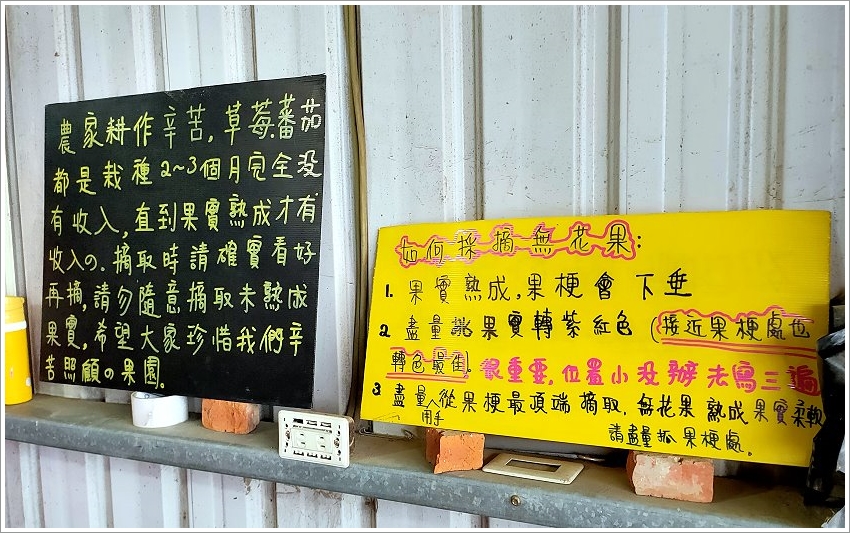 農家耕作辛苦,草莓.蕃茄
都是栽種2~3個月完全没
有收入,直到果實熟成才有
收入の.摘取時請確實看好
再摘,請勿隨意摘取未熟成
果實,希望大家珍惜我們辛
苦照顧の果園.
如何採摘無花果:
1. 果實熟成,果梗會下垂
2. 盡量挑果實轉紫紅色(接近果梗處也
轉色最佳.很重要,位置小没辦法寫三遍
3. 盡量用手從果梗最頂端摘取.無花果熟成果實柔軟
請盡量抓果梗處.